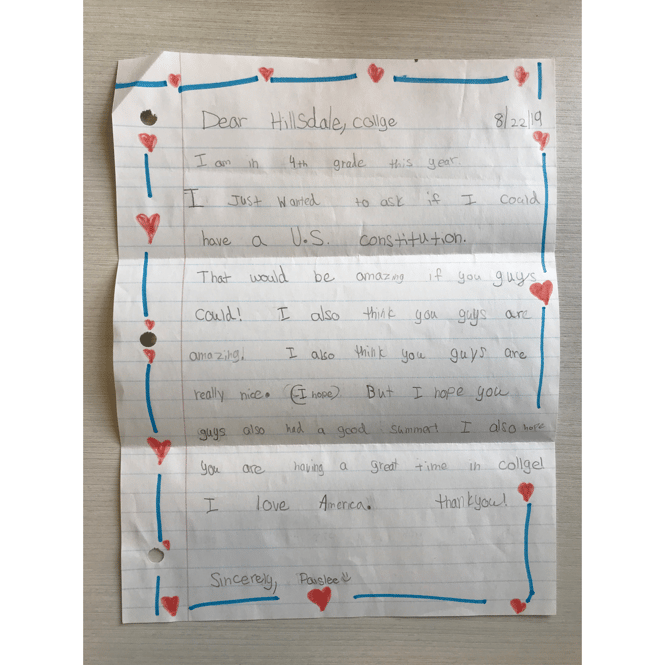 Dear Hillsdale, collge 8/22/19
I am in 4th grade this year.
I Just wanted to ask if I could
have a U.S. constitution.
That would be amazing if you guys
could! I also think you guys are
amazing! I also think you guys are
really nice. (-I hope) But I hope you
guys also had a good summer! I also hope
you are having a great time in collge!
I love America! thankyou!
Sincerely, Paislee